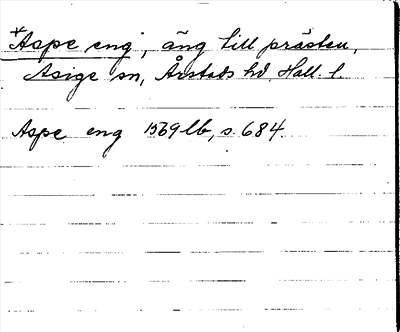 *Aspe eng, äng till prästen,
Asige sn, Årstads hd. Hall. l.
Aspe eng 1569 lb, s. 684.